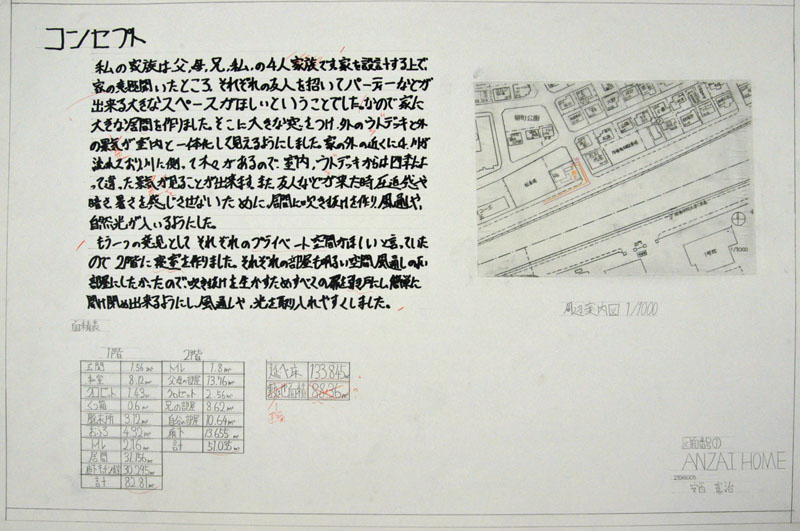 コンセプト
私の家族は父,母,兄,私,の4人家族です家を設計する上で
家の意見聞いたところ それぞれの友人を招いてパーティーなどが
出来る大きなスペースがほしいということでした。なので家に
大きな居間を作りました。そこに大きな窓をつけ,外のウトデッキと外
の景気が室内と一体化して見えるようにしました。家の外の近くに
流れており川に側して木々があるので,室内,ウトデッキからは四季によ
って違った景気が見ることが出来ます。また友人などが来た時圧迫感や
暗さ暑さを感じさせないために,居間に吹き抜けを作り,風通しや,
自然光が入いるようにした。
もう一つの意見として それぞれのプライベート空間がほしいと言っていた
ので 2階に寝室を作りました。それぞれの部屋も明るい空間,風通しの良い
部屋にしたかったので吹き抜けを生かすためすべての扉を引戸にし,簡単に
開け閉め出来るようにし,風通しや,光を取り入れやすくしました。
周辺案内図 1/1000
面積表
1階 2階
玄関 1.56㎡ トイレ 1.8㎡
和室 8.12㎡ 父母の部屋 13.76㎡
クロゼット 1.43㎡ クロゼット 2.56㎡
くつ箱 0.6㎡ 兄の部屋 8.62㎡
脱衣所 3.12㎡ 自分の部屋 10.64㎡
おふろ 4.92㎡ 廊下 13.655㎡
トイレ 2.16㎡ 計 51.035㎡
居間 31.156㎡
30.295㎡
計 82.81㎡
延べ床 133.845㎡
敷地面積 88.36㎡
図面番号①
ANZAI HOME
安西